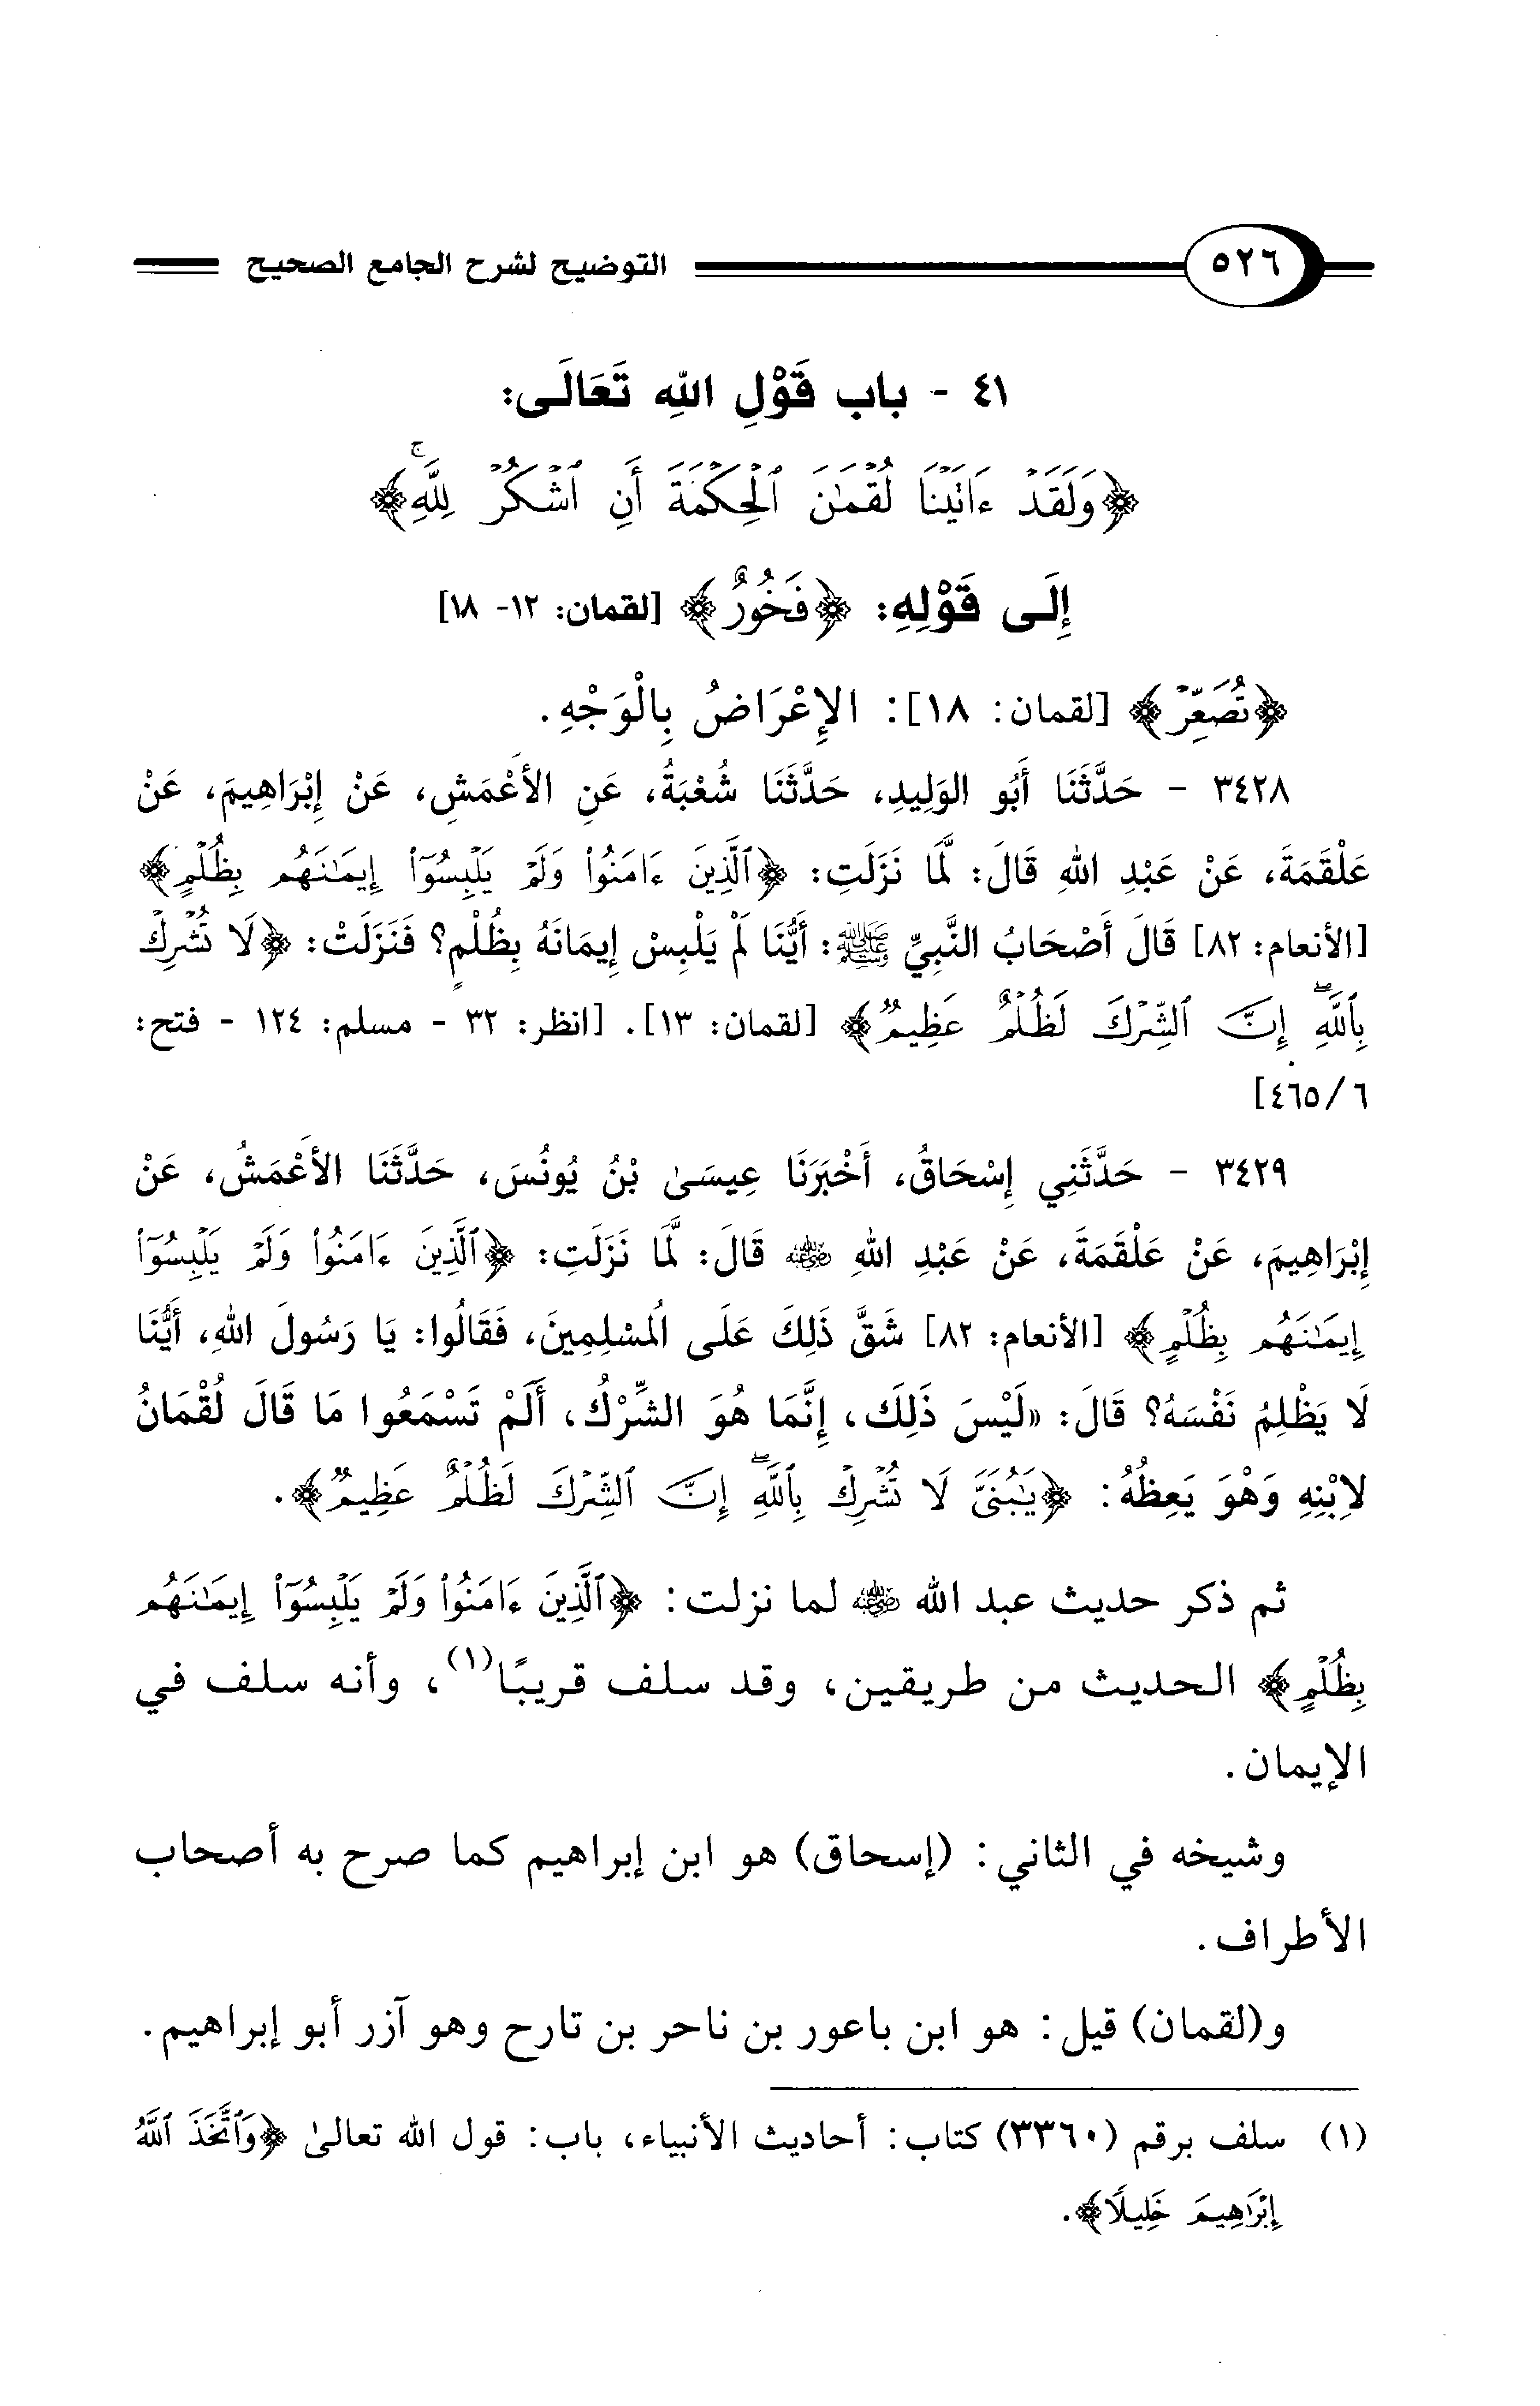 ٥٢٦ التوضيح لشرح الجامع الصحيح
٤١ - باب قَوْلِ اللهِ تَعَالَى:
﴿وَلَقَدْ ءَاتَيْنَا لُقْمَٰنَ ٱلْحِكْمَةَ أَنِ ٱشْكُرْ لِلَّهِۚ﴾
إِلَى قَوْلِهِ: ﴿فَخُورٌ﴾ [لقمان: ١٢- ١٨]
﴿تُصَعِّرْ﴾ [لقمان: ١٨]: الإِعْرَاضُ بِالْوَجْهِ.
٣٤٢٨ - حَدَّثَنَا أَبُو الوَلِيدِ، حَدَّثَنَا شُعْبَةُ، عَنِ الأَعْمَشِ، عَنْ إِبْرَاهِيمَ، عَنْ
عَلْقَمَةَ، عَنْ عَبْدِ اللهِ قَالَ: لَمَّا نَزَلَتِ: ﴿ٱلَّذِينَ ءَامَنُوا۟ وَلَمْ يَلْبِسُوٓا۟ إِيمَٰنَهُم بِظُلْمٍ﴾
[الأنعام: ٨٢] قَالَ أَصْحَابُ النَّبِيِّ ﷺ: أَيُّنَا لَمْ يَلْبِسْ إِيمَانَهُ بِظُلْمٍ؟ فَنَزَلَتْ: ﴿لَا تُشْرِكْ
بِٱللَّهِۖ إِنَّ ٱلشِّرْكَ لَظُلْمٌ عَظِيمٌ﴾ [لقمان: ١٣]. [انظر: ٣٢ - مسلم: ١٢٤ - فتح:
٦/ ٤٦٥]
٣٤٢٩ - حَدَّثَنِي إِسْحَاقُ، أَخْبَرَنَا عِيسَىٰ بْنُ يُونُسَ، حَدَّثَنَا الأَعْمَشُ، عَنْ
إِبْرَاهِيمَ، عَنْ عَلْقَمَةَ، عَنْ عَبْدِ اللهِ رضي الله عنه قَالَ: لَمَّا نَزَلَتِ: ﴿ٱلَّذِينَ ءَامَنُوا۟ وَلَمْ يَلْبِسُوٓا۟
إِيمَٰنَهُم بِظُلْمٍ﴾ [الأنعام: ٨٢] شَقَّ ذَلِكَ عَلَى المُسْلِمِينَ، فَقَالُوا: يَا رَسُولَ اللهِ، أَيُّنَا
لَا يَظْلِمُ نَفْسَهُ؟ قَالَ: «لَيْسَ ذَلِكَ، إِنَّمَا هُوَ الشِّرْكُ، أَلَمْ تَسْمَعُوا مَا قَالَ لُقْمَانُ
لاِبْنِهِ وَهْوَ يَعِظُهُ: ﴿يَٰبُنَىَّ لَا تُشْرِكْ بِٱللَّهِۖ إِنَّ ٱلشِّرْكَ لَظُلْمٌ عَظِيمٌ﴾.
ثم ذكر حديث عبد الله رضي الله عنه لما نزلت: ﴿ٱلَّذِينَ ءَامَنُوا۟ وَلَمْ يَلْبِسُوٓا۟ إِيمَٰنَهُم
بِظُلْمٍ﴾ الحديث من طريقين، وقد سلف قريبًا(١)، وأنه سلف في
الإيمان.
وشيخه في الثاني: (إسحاق) هو ابن إبراهيم كما صرح به أصحاب
الأطراف.
و(لقمان) قيل: هو ابن باعور بن ناحر بن تارح وهو آزر أبو إبراهيم.
(١) سلف برقم (٣٣٦٠) كتاب: أحاديث الأنبياء، باب: قول الله تعالىٰ ﴿وَٱتَّخَذَ ٱللَّهُ
إِبْرَٰهِيمَ خَلِيلًا﴾.